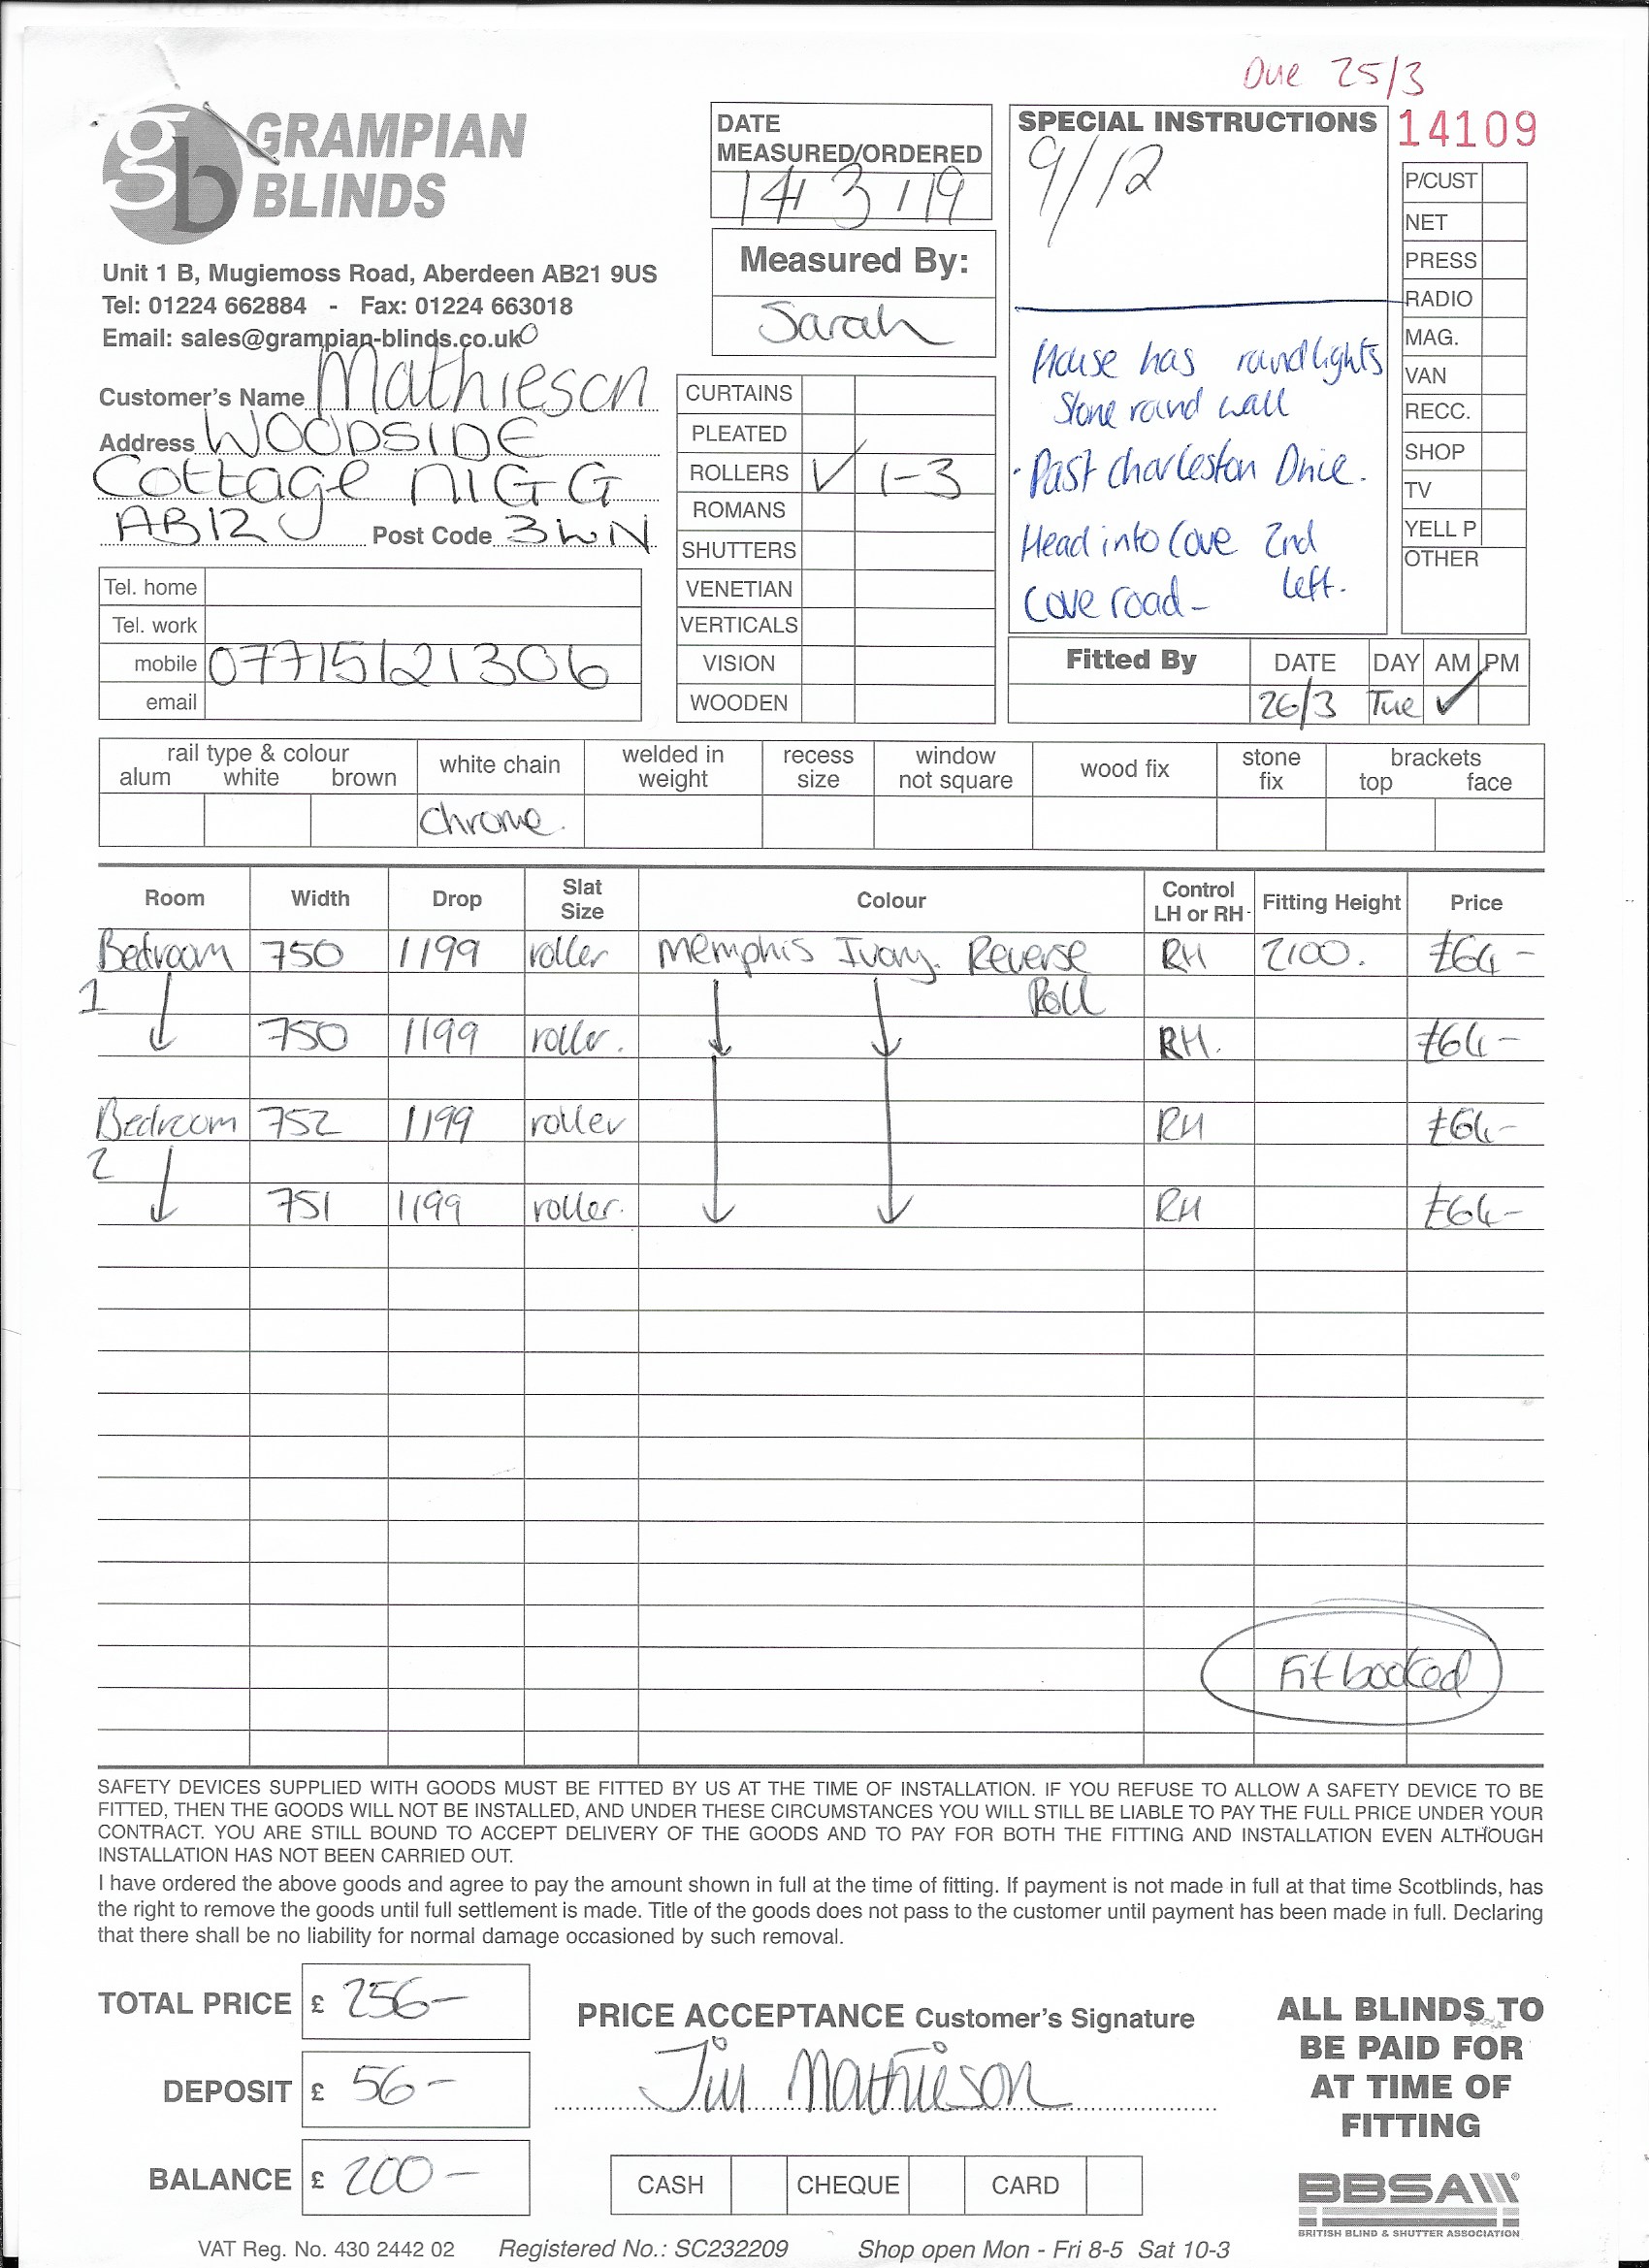 Due 25/3
14109
gb GRAMPIAN
BLINDS
Unit 1 B, Mugiemoss Road, Aberdeen AB21 9US
Tel: 01224 662884 - Fax: 01224 663018
Email: sales@grampian-blinds.co.uk
Customer's Name Mathieson
Address WOODSIDE
Cottage NIGG
AB12 Post Code 3LN
Tel. home
Tel. work
mobile 07715121306
email
DATE
MEASURED/ORDERED
14 3 19
Measured By:
Sarah
CURTAINS
PLEATED
ROLLERS ✓ 1-3
ROMANS
SHUTTERS
VENETIAN
VERTICALS
VISION
WOODEN
SPECIAL INSTRUCTIONS
9/12
House has round lights
Stone round wall
- Past charleston Drive.
Head into Cove 2nd
left.
Cove road -
P/CUST
NET
PRESS
RADIO
MAG.
VAN
RECC.
SHOP
TV
YELL P
OTHER
Fitted By DATE DAY AM PM
26/3 Tue ✓
rail type & colour white chain welded in weight recess size window not square wood fix stone fix brackets
alum white brown top face
Chrome.
Room Width Drop Slat Size Colour Control LH or RH Fitting Height Price
Bedroom 750 1199 roller Memphis Ivory. Reverse RH 2100. £64-
1 Roll
750 1199 roller. RH. £64-
Bedroom 752 1199 roller RH £64-
2
751 1199 roller. RH £64-
Fit booked
SAFETY DEVICES SUPPLIED WITH GOODS MUST BE FITTED BY US AT THE TIME OF INSTALLATION. IF YOU REFUSE TO ALLOW A SAFETY DEVICE TO BE
FITTED, THEN THE GOODS WILL NOT BE INSTALLED, AND UNDER THESE CIRCUMSTANCES YOU WILL STILL BE LIABLE TO PAY THE FULL PRICE UNDER YOUR
CONTRACT. YOU ARE STILL BOUND TO ACCEPT DELIVERY OF THE GOODS AND TO PAY FOR BOTH THE FITTING AND INSTALLATION EVEN ALTHOUGH
INSTALLATION HAS NOT BEEN CARRIED OUT.
I have ordered the above goods and agree to pay the amount shown in full at the time of fitting. If payment is not made in full at that time Scotblinds, has
the right to remove the goods until full settlement is made. Title of the goods does not pass to the customer until payment has been made in full. Declaring
that there shall be no liability for normal damage occasioned by such removal.
TOTAL PRICE £ 256-
DEPOSIT £ 56-
BALANCE £ 200-
PRICE ACCEPTANCE Customer's Signature
Jill Mathieson
CASH CHEQUE CARD
ALL BLINDS TO
BE PAID FOR
AT TIME OF
FITTING
BBSA
BRITISH BLIND & SHUTTER ASSOCIATION
VAT Reg. No. 430 2442 02 Registered No.: SC232209 Shop open Mon - Fri 8-5 Sat 10-3